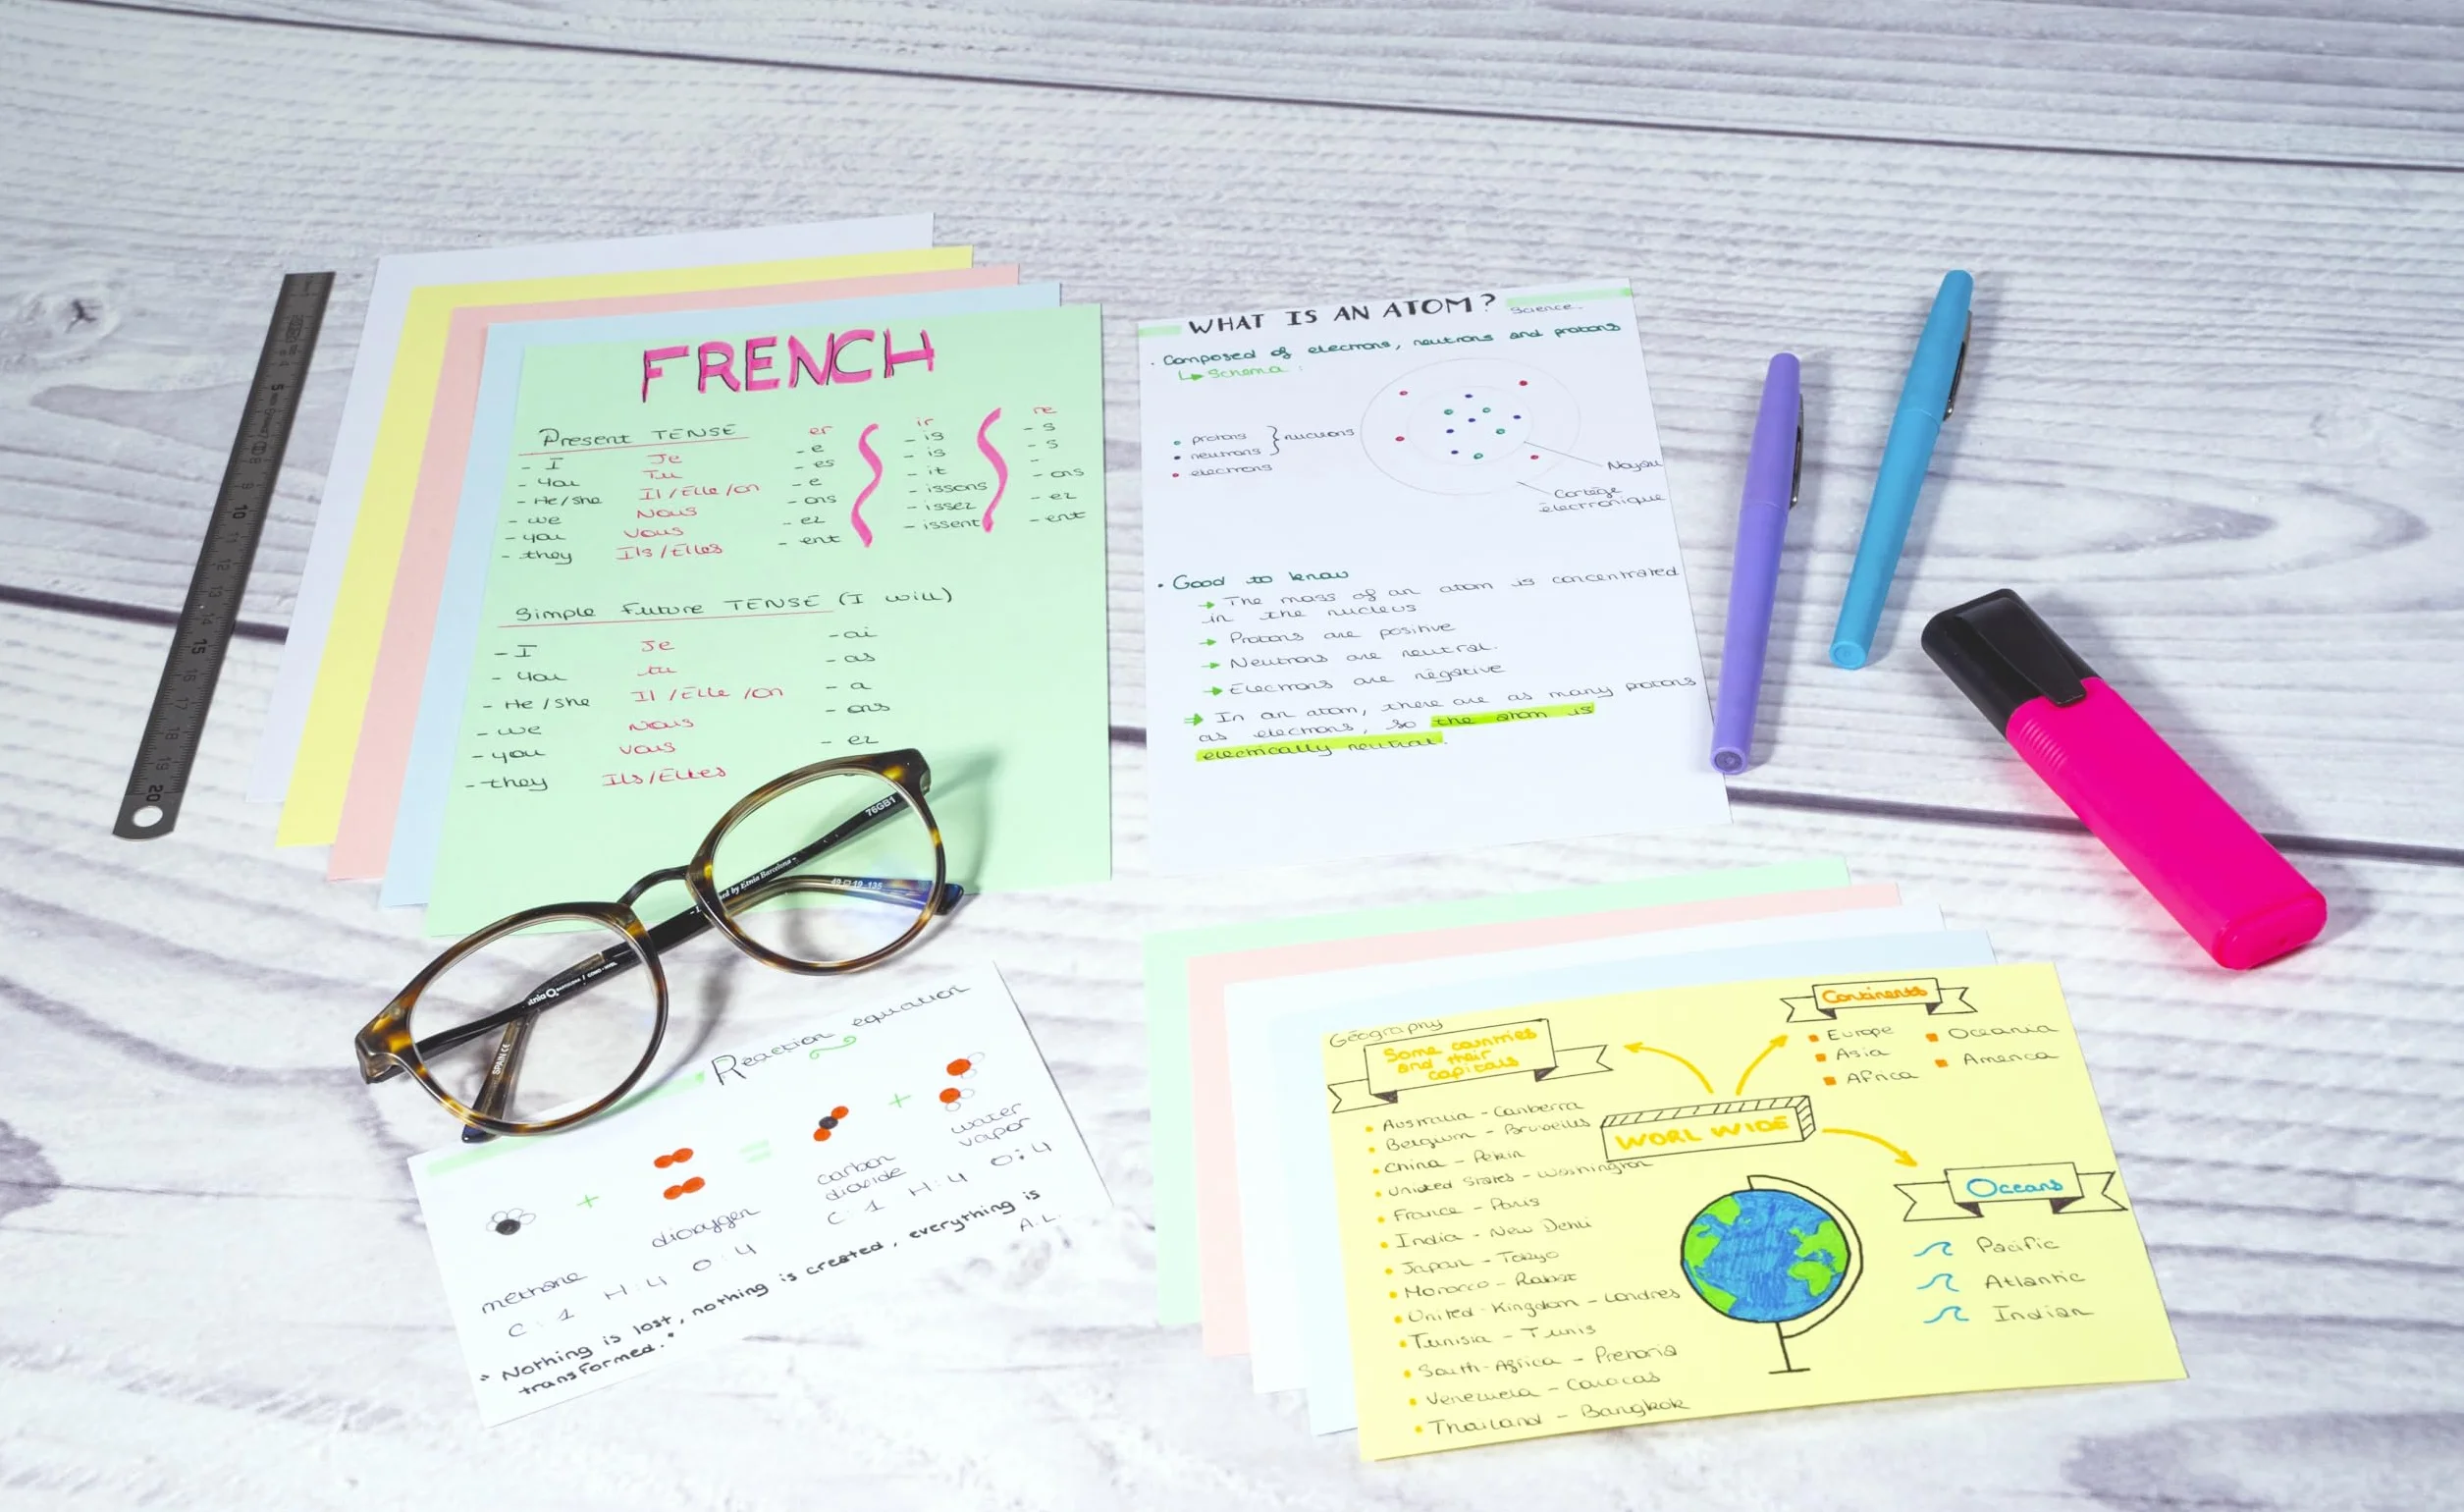 FRENCH
Present TENSE er ir re
- I Je - e - is - s
- you Tu - es - is - s
- He/she Il/Elle/on - e - it -
- we Nous - ons - issons - ons
- you Vous - ez - issez - ez
- they Ils/Elles - ent - issent - ent
Simple Future TENSE (I will)
- I Je - ai
- you tu - as
- He/she Il/Elle/on - a
- we Nous - ons
- you Vous - ez
- they Ils/Elles
WHAT IS AN ATOM? Science
• Composed of electrons, neutrons and protons
Schema :
• protons
• neutrons } nucléons
• electrons
Noyau
Cortège
électronique
• Good to know
→ The mass of an atom is concentrated
in the nucleus
→ Protons are positive
→ Neutrons are neutral.
→ Electrons are négative
⇒ In an atom, there are as many protons
as electrons, so the atom is
electrically neutral.
76GB1
by Etnia Barcelona -
49 19 135
SPAIN CE
Reaction equation
+ = +
methane dioxygen carbon dioxide water vapor
C : 1 H : 4 O : 4 C : 1 H : 4 O : 4
" Nothing is lost, nothing is created, everything is
transformed." A.L.
Géography
Some countries
and their
capitals
• Australia - Canberra
• Belgium - Bruxelles
• China - Pékin
• United States - Washington
• France - Paris
• India - New Dehli
• Japan - Tokyo
• Morocco - Rabat
• United-Kingdom - Londres
• Tunisia - Tunis
• South-Africa - Pretoria
• Venezuela - Caracas
• Thailand - Bangkok
WORL WIDE
Continents
Europe Oceania
Asia America
Africa
Oceans
Pacific
Atlantic
Indian
5 8 9 10 11 12 13 14 15 16 17 18 19 20